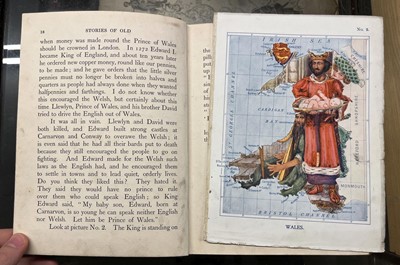 18 STORIES OF OLD
when money was made round the Prince of Wales
should be crowned in London. In 1272 Edward I.
became King of England, and about ten years later
he ordered new copper money, round like our pennies,
to be made; and he gave orders that the little silver
pennies must no longer be broken into halves and
quarters as people had always done when they wanted
halfpennies and farthings. I do not know whether
this encouraged the Welsh, but certainly about this
time Llewlyn, Prince of Wales, and his brother David
tried to drive the English out of Wales.
It was all in vain. Llewlyn and David were
both killed, and Edward built strong castles at
Carnarvon and Conway to overawe the Welsh; it
is even said that he had all their bards put to death
because they still encouraged the people to go on
fighting. And Edward made for the Welsh such
laws as the English had, and he encouraged them
to settle in towns and to lead quiet, orderly lives.
Do you think they liked this? They hated it.
They said they would have no prince to rule
over them who could speak English; so King
Edward said, "My baby son, Edward, born at
Carnarvon, is so young he can speak neither English
nor Welsh. Let him be Prince of Wales."
Look at picture No. 2. The King is standing on
IRISH SEA
CARDIGAN
BAY
BRISTOL CHANNEL
MONMOUTH
WALES.